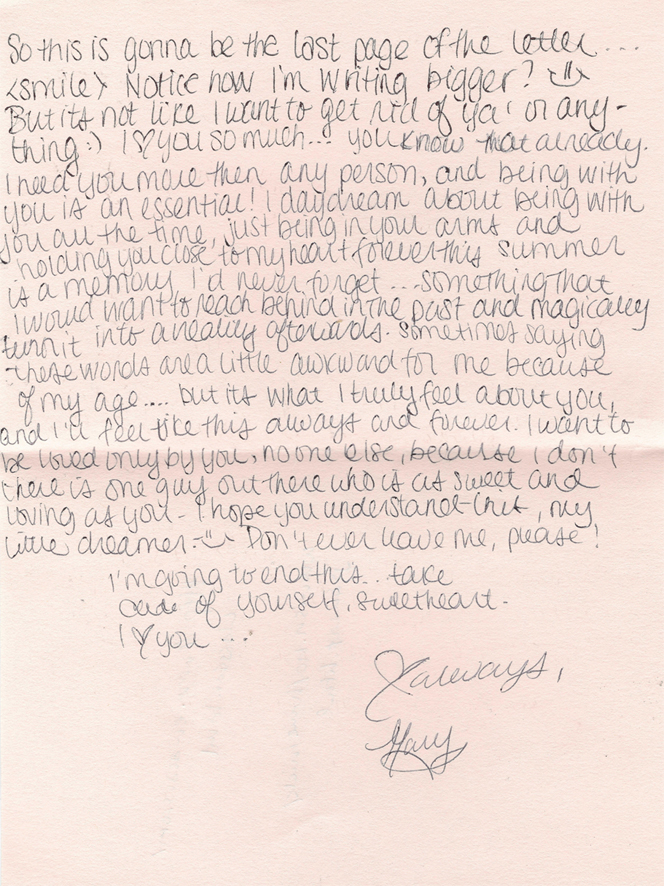 So this is gonna be the last page of the letter...
<smile> Notice how I'm writing bigger?
But its not like I want to get rid of ya' or any-
thing :) I ♡ you so much... you know that already.
I need you more then any person, and being with
you is an essential! I daydream about being with
you all the time, just being in your arms and
holding you close to my heart forever this summer
is a memory I'd never forget...something that
I would want to reach behind in the past and magically
turn it into a reality afterwards. Sometimes saying
these words are a little awkward for me because
of my age.... but its what I truly feel about you,
and I'll feel like this always and forever. I want to
be loved only by you, no one else, because I don't
there is one guy out there who is as sweet and
loving as you - I hope you understand this, my
little dreamer. Don't ever leave me, please!
I'm going to end this.. take
care of yourself, sweetheart.
I ♡ you ...
♡ always,
Mary